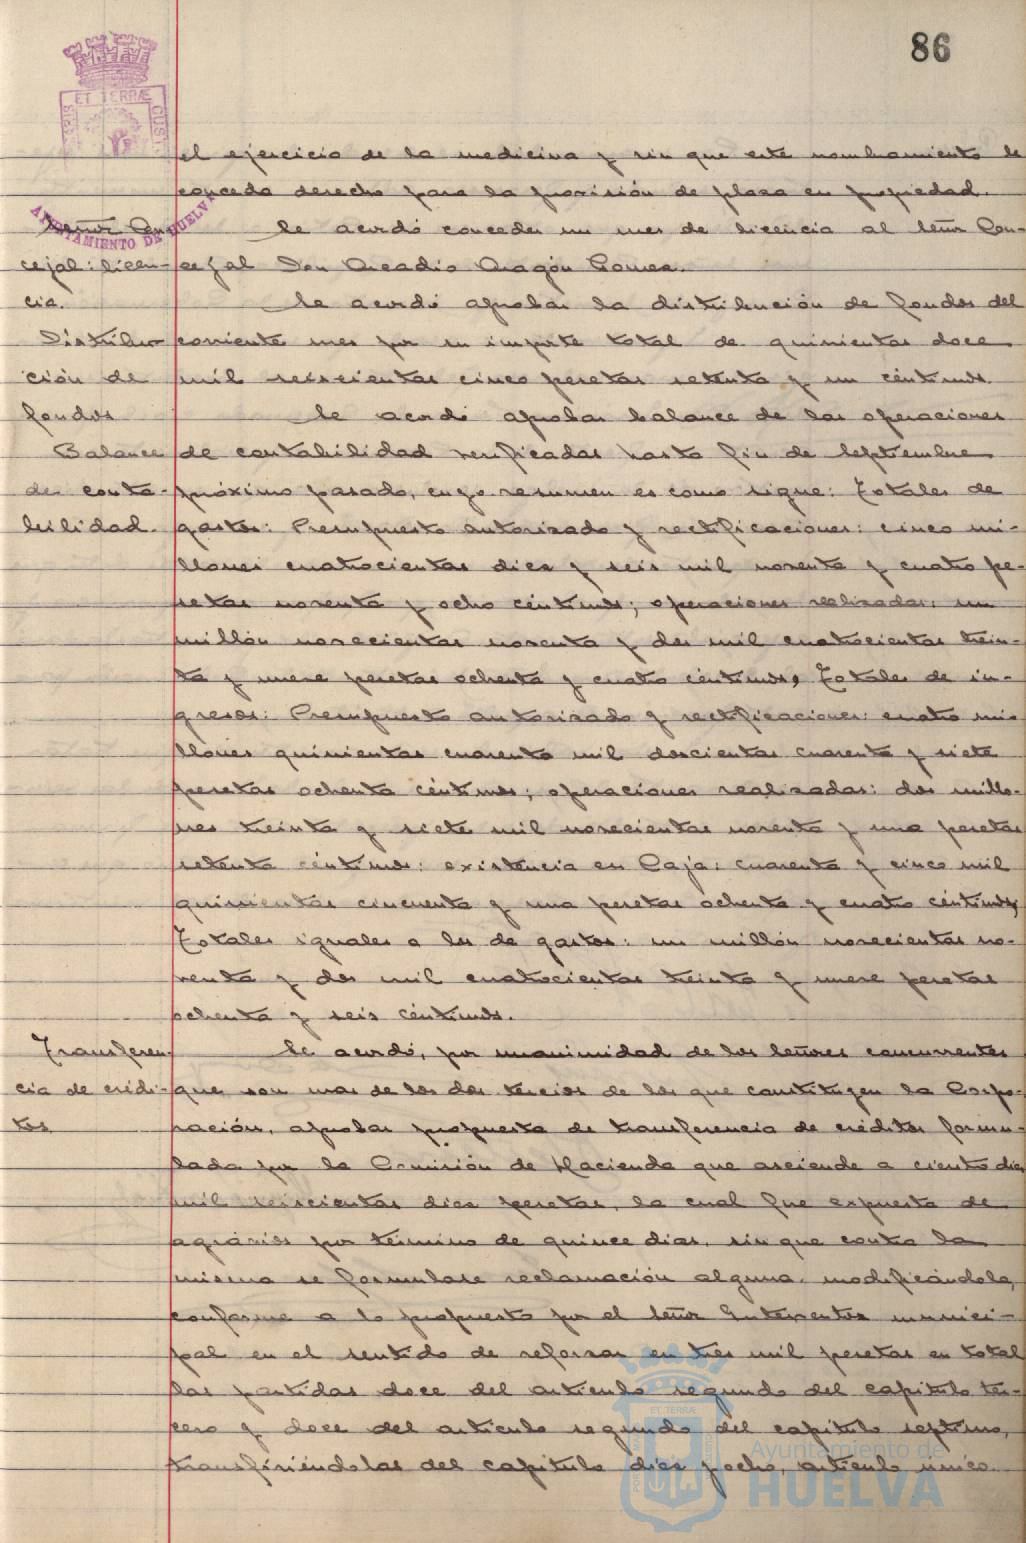 86
ET TERRÆ
AYUNTAMIENTO DE HUELVA
el ejercicio de la medicina y sin que este nombramiento le
conceda derecho para la provisión de plaza en propiedad.
Señor Con-
cejal: licen-
cia.
Se acordó conceder un mes de licencia al Señor Con-
cejal Don Arcadio Aragón Gomez.
Distribu-
ción de
fondos
Se acordó aprobar la distribución de fondos del
corriente mes por su importe total de quinientas doce
mil seiscientas cinco pesetas setenta y un céntimos.
Balance
de conta-
bilidad.
Se acordó aprobar balance de las operaciones
de contabilidad verificadas hasta fin de Septiembre
próximo pasado, cuyo resumen es como sigue: Totales de
gastos: Presupuesto autorizado y rectificaciones: cinco mi-
llones cuatrocientas diez y seis mil noventa y cuatro pe-
setas noventa y ocho céntimos; operaciones realizadas: un
millón novecientas noventa y dos mil cuatrocientas trein-
ta y nueve pesetas ochenta y cuatro céntimos, Totales de in-
gresos: Presupuesto autorizado y rectificaciones: cuatro mi-
llones quinientas cuarenta mil doscientas cuarenta y siete
pesetas ochenta céntimos; operaciones realizadas: dos millo-
nes treinta y siete mil novecientas noventa y una pesetas
setenta céntimos: existencia en Caja: cuarenta y cinco mil
quinientas cincuenta y una pesetas ochenta y cuatro céntimos,
Totales iguales a los de gastos: un millón novecientas no-
venta y dos mil cuatrocientas treinta y nueve pesetas
ochenta y seis céntimos.
Transferen-
cia de crédi-
tos
Se acordó, por unanimidad de los Señores concurrentes
que son mas de los dos tercios de los que constituyen la Corpo-
ración, aprobar propuesta de transferencia de créditos formu-
lada por la Comisión de Hacienda que asciende a ciento diez
mil seiscientas diez pesetas, la cual fue expuesta de
agravios por término de quince dias, sin que contra la
misma se formulase reclamación alguna, modificándola,
conforme a lo propuesto por el Señor Interventor munici-
pal en el sentido de reforzar en tres mil pesetas en total
las partidas doce del artículo segundo del capítulo ter-
cero y doce del artículo segundo del capítulo septimo,
transfiriéndolas del capítulo diez y ocho, artículo único.
ET TERRÆ
Ayuntamiento de
HUELVA